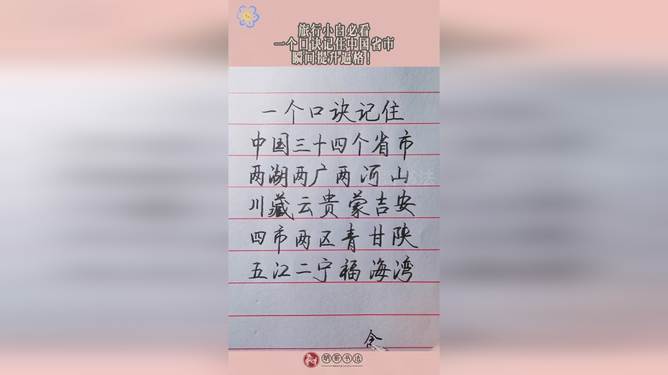 旅行小白必看
一个口诀记住中国省市
瞬间提升逼格！
一个口诀记住
中国三十四个省市
两湖两广两河山
川藏云贵蒙吉安
四市两区青甘陕
五江二宁福海湾
念